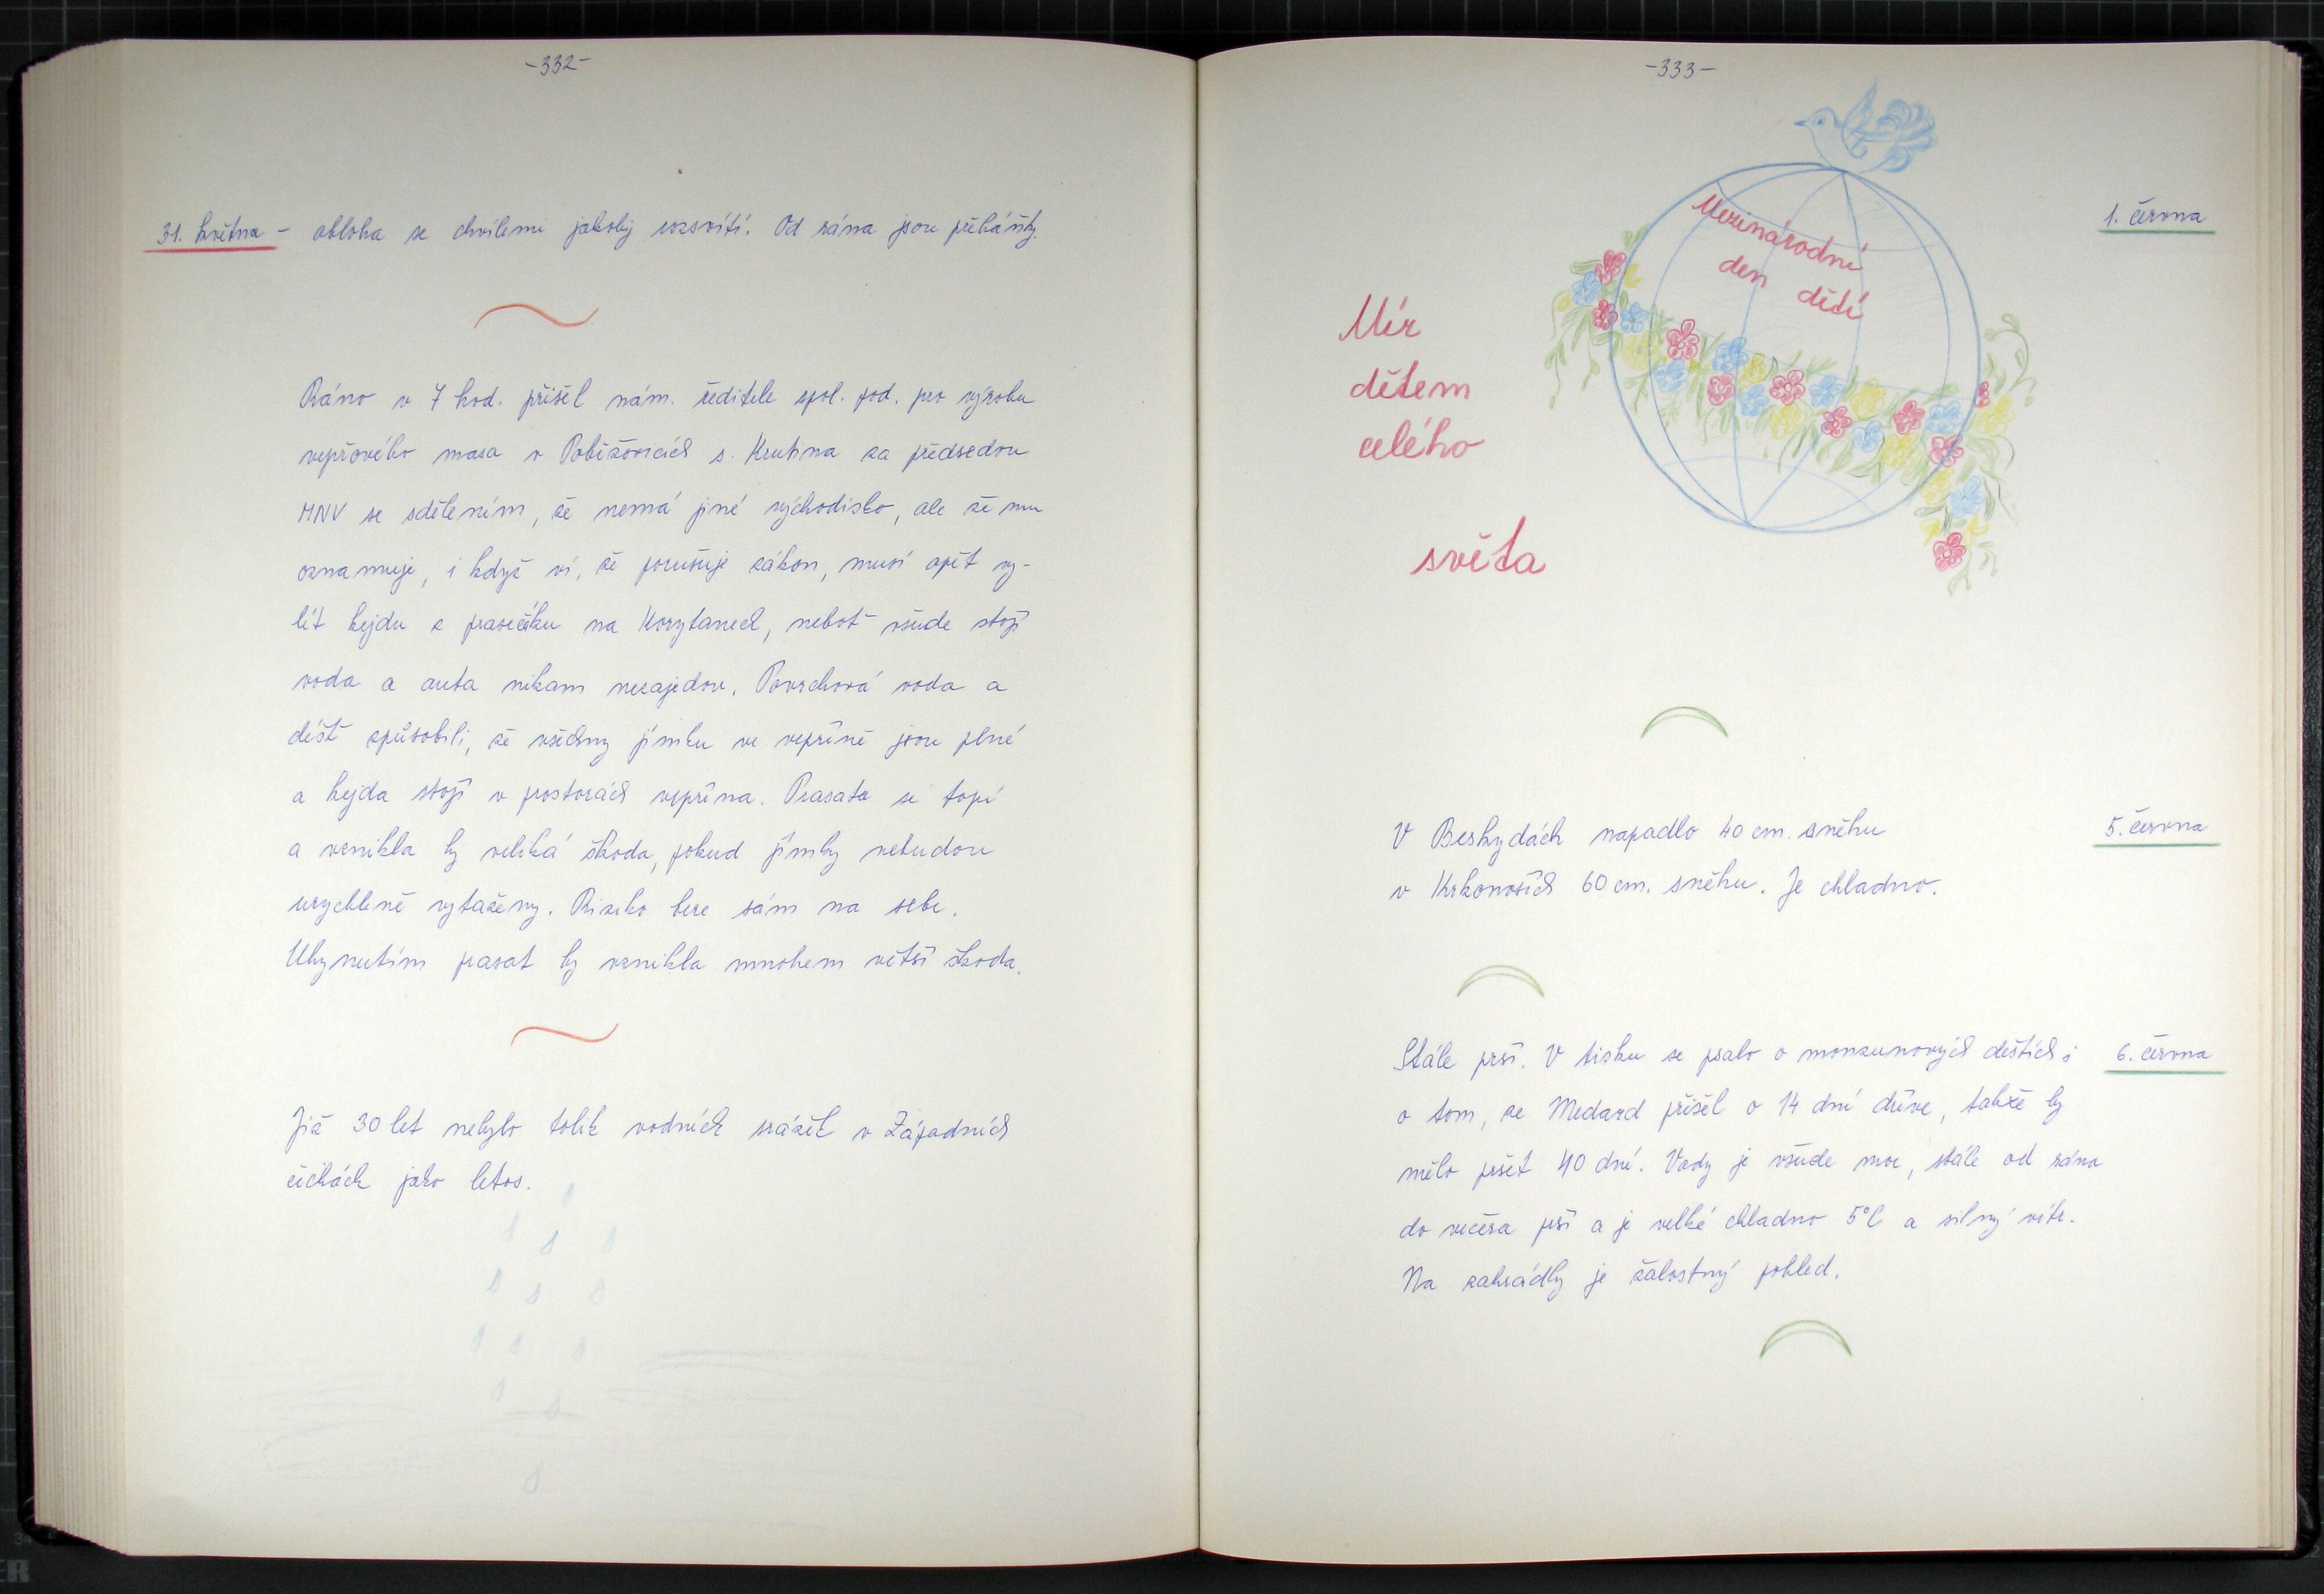 -332-
31. května - obloha se chvílemi jakoby rozsvítí. Od rána jsou přeháňky.
Ráno v 7 hod. přišel nám. ředitele spol. pod. pro výrobu
vepřového masa v Poběžovicích s. Kruhna za předsedou
MNV se sdělením, že nemá jiné východisko, ale že mu
oznamuje, i když ví, že porušuje zákon, musí opět vy-
lít kejdu z prasečáku na Korytanech, neboť všude stojí
voda a auta nikam nezajedou. Povrchová voda a
déšť způsobili, že všechny jímku ve vepříně jsou plné
a kejda stojí v prostorách vepřína. Prasata se topí
a vznikla by veliká škoda, pokud jímky nebudou
urychleně vytaženy. Riziko bere sám na sebe.
Uhynutím prasat by vznikla mnohem větší škoda.
Již 30 let nebylo tolik vodních srážek v Západních
čechách jako letos.
-333-
1. června
Mezinárodní
den dětí
Mír
dětem
celého
světa
V Beskydách napadlo 40 cm. sněhu 5. června
v Krkonoších 60 cm. sněhu. Je chladno.
Stále prší. V tisku se psalo o monzunových deštích i 6. června
o tom, že Medard přišel o 14 dní dříve, takže by
mělo pršet 40 dní. Vody je všude moc, stále od rána
do večera prší a je velké chladno 5°C a silný vítr.
Na zahrádky je žalostný pohled.